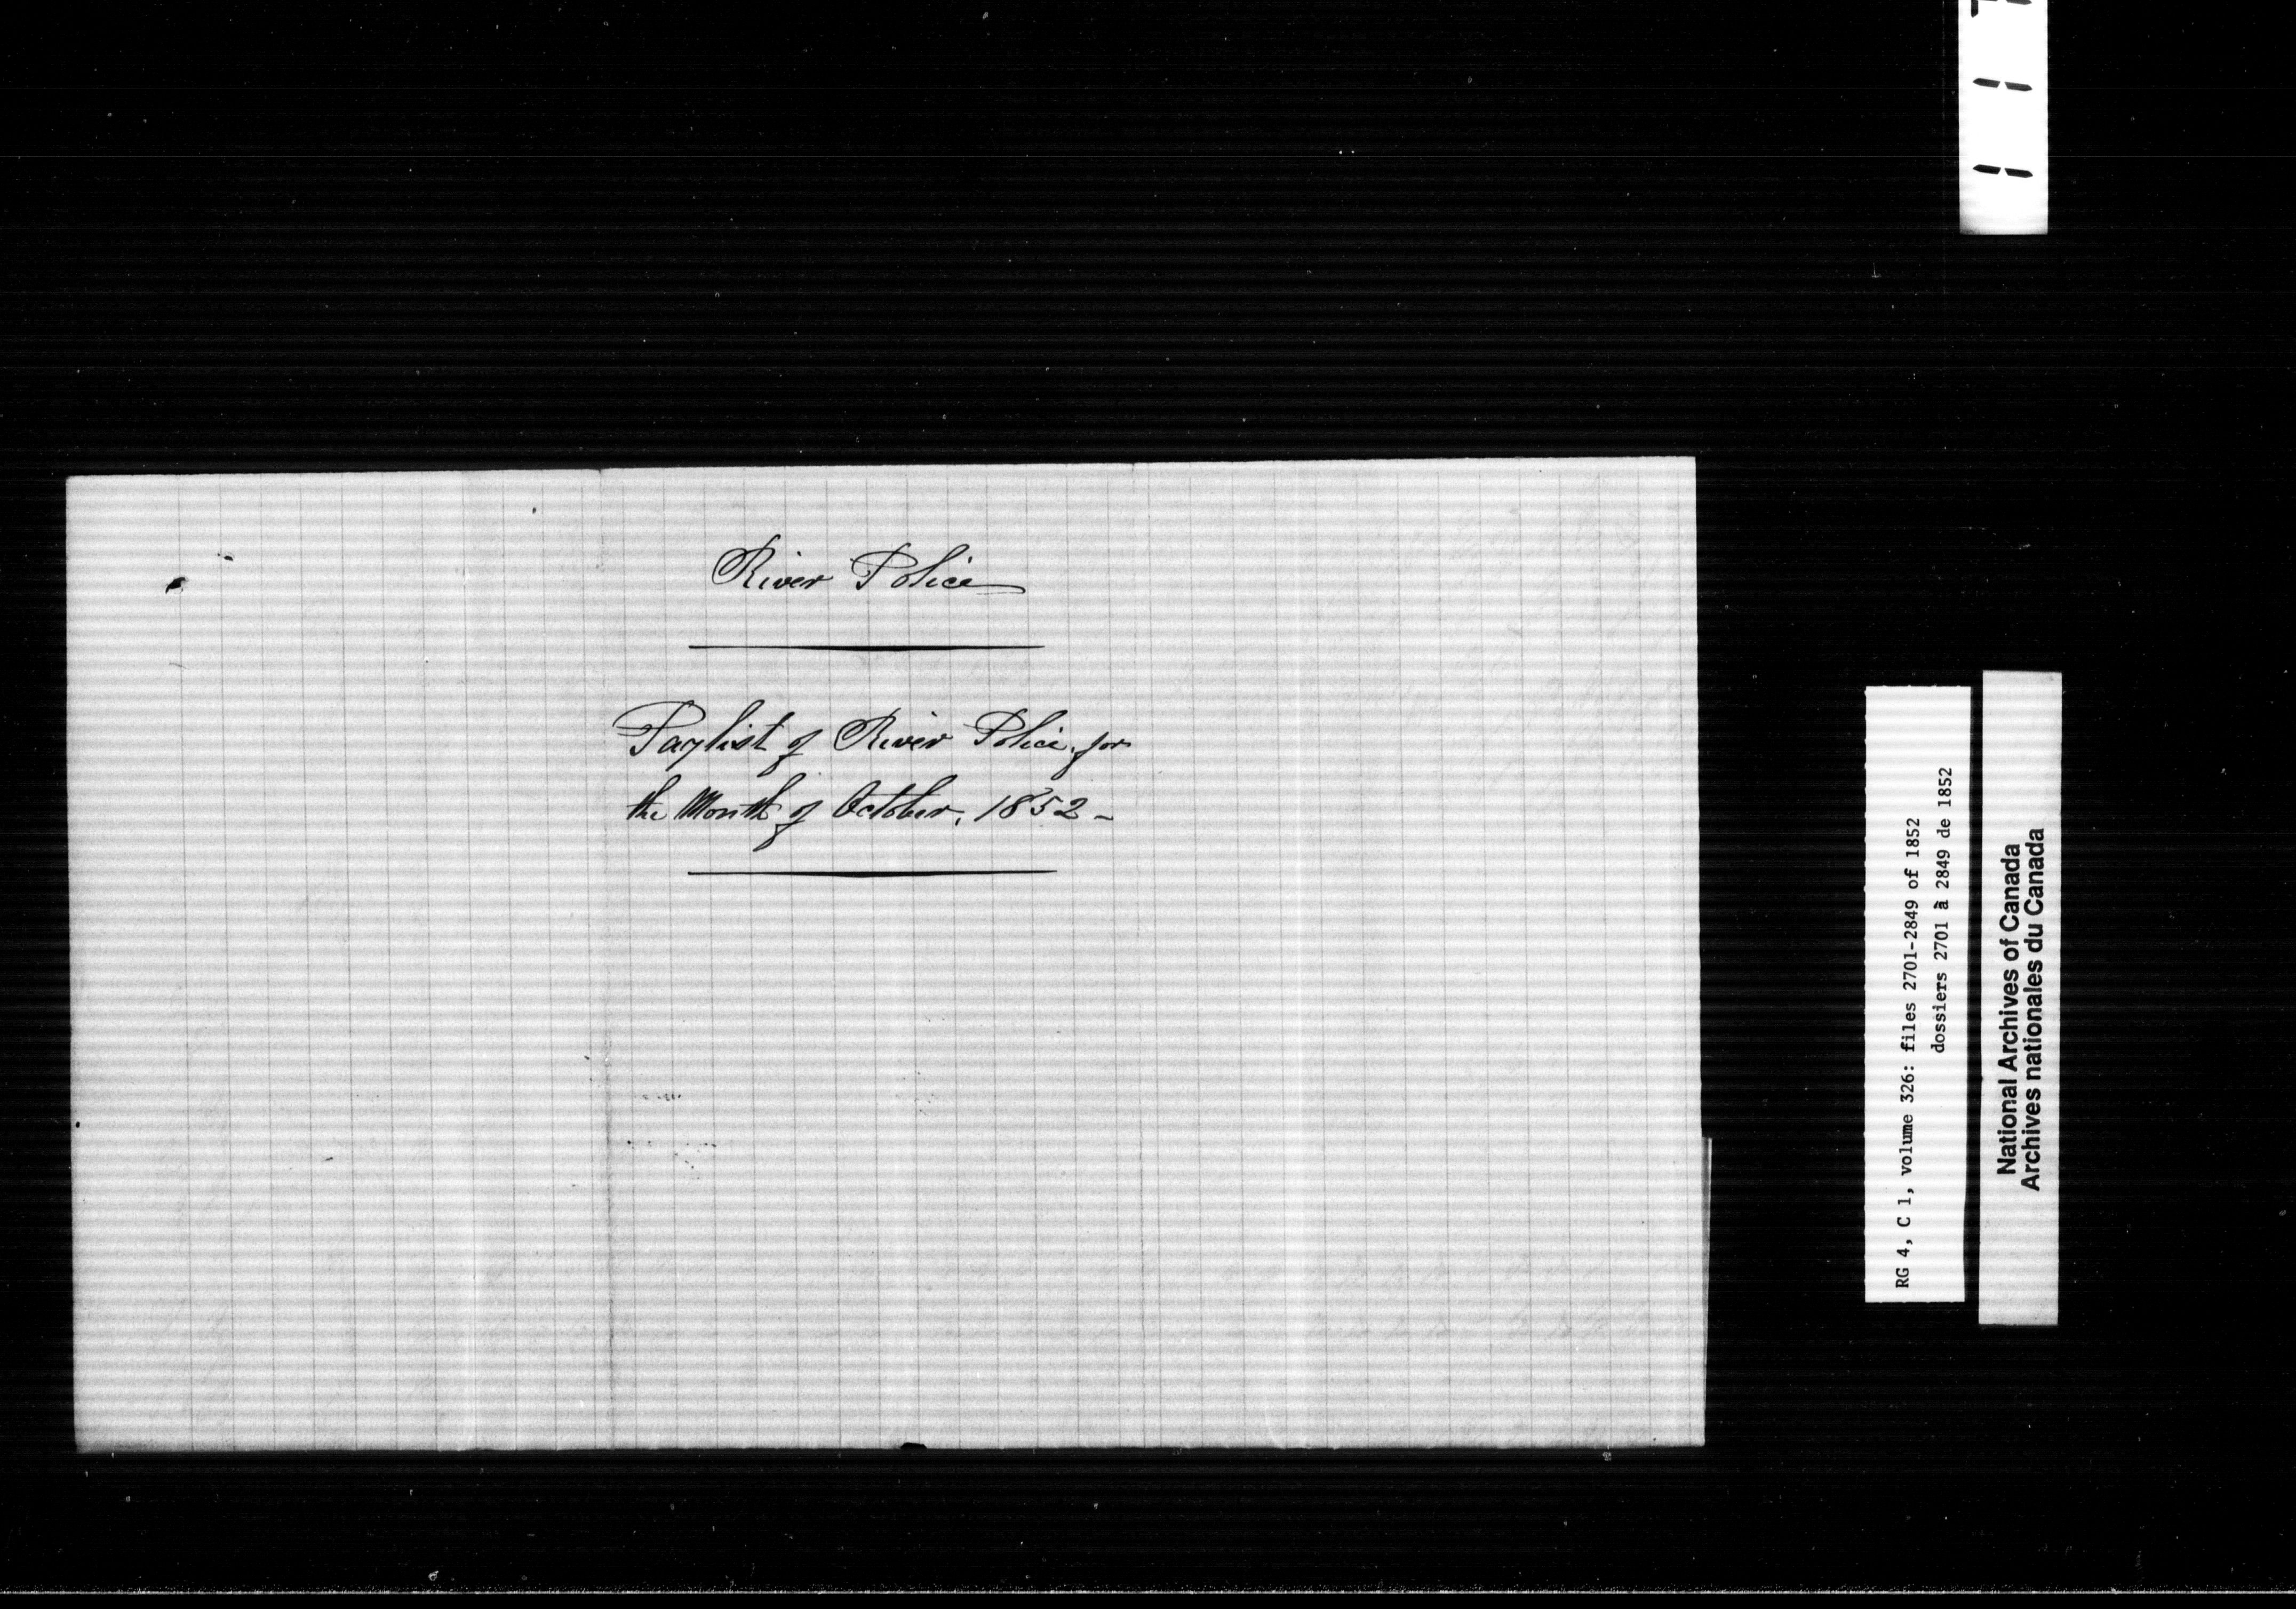 River Police
Paylist of River Police, for
the Month of October, 1852 -
RG 4, C 1, volume 326: files 2701-2849 of 1852
dossiers 2701 à 2849 de 1852
National Archives of Canada
Archives nationales du Canada